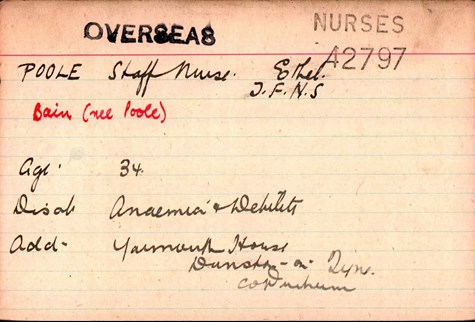 OVERSEAS
NURSES
42797
POOLE Staff Nurse. Ethel.
T.F.N.S
Bain (nee Poole)
Age. 34.
Disab Anaemia & Debility
Add- Yarmouth House
Dunston-on-Tyne.
Co Durham